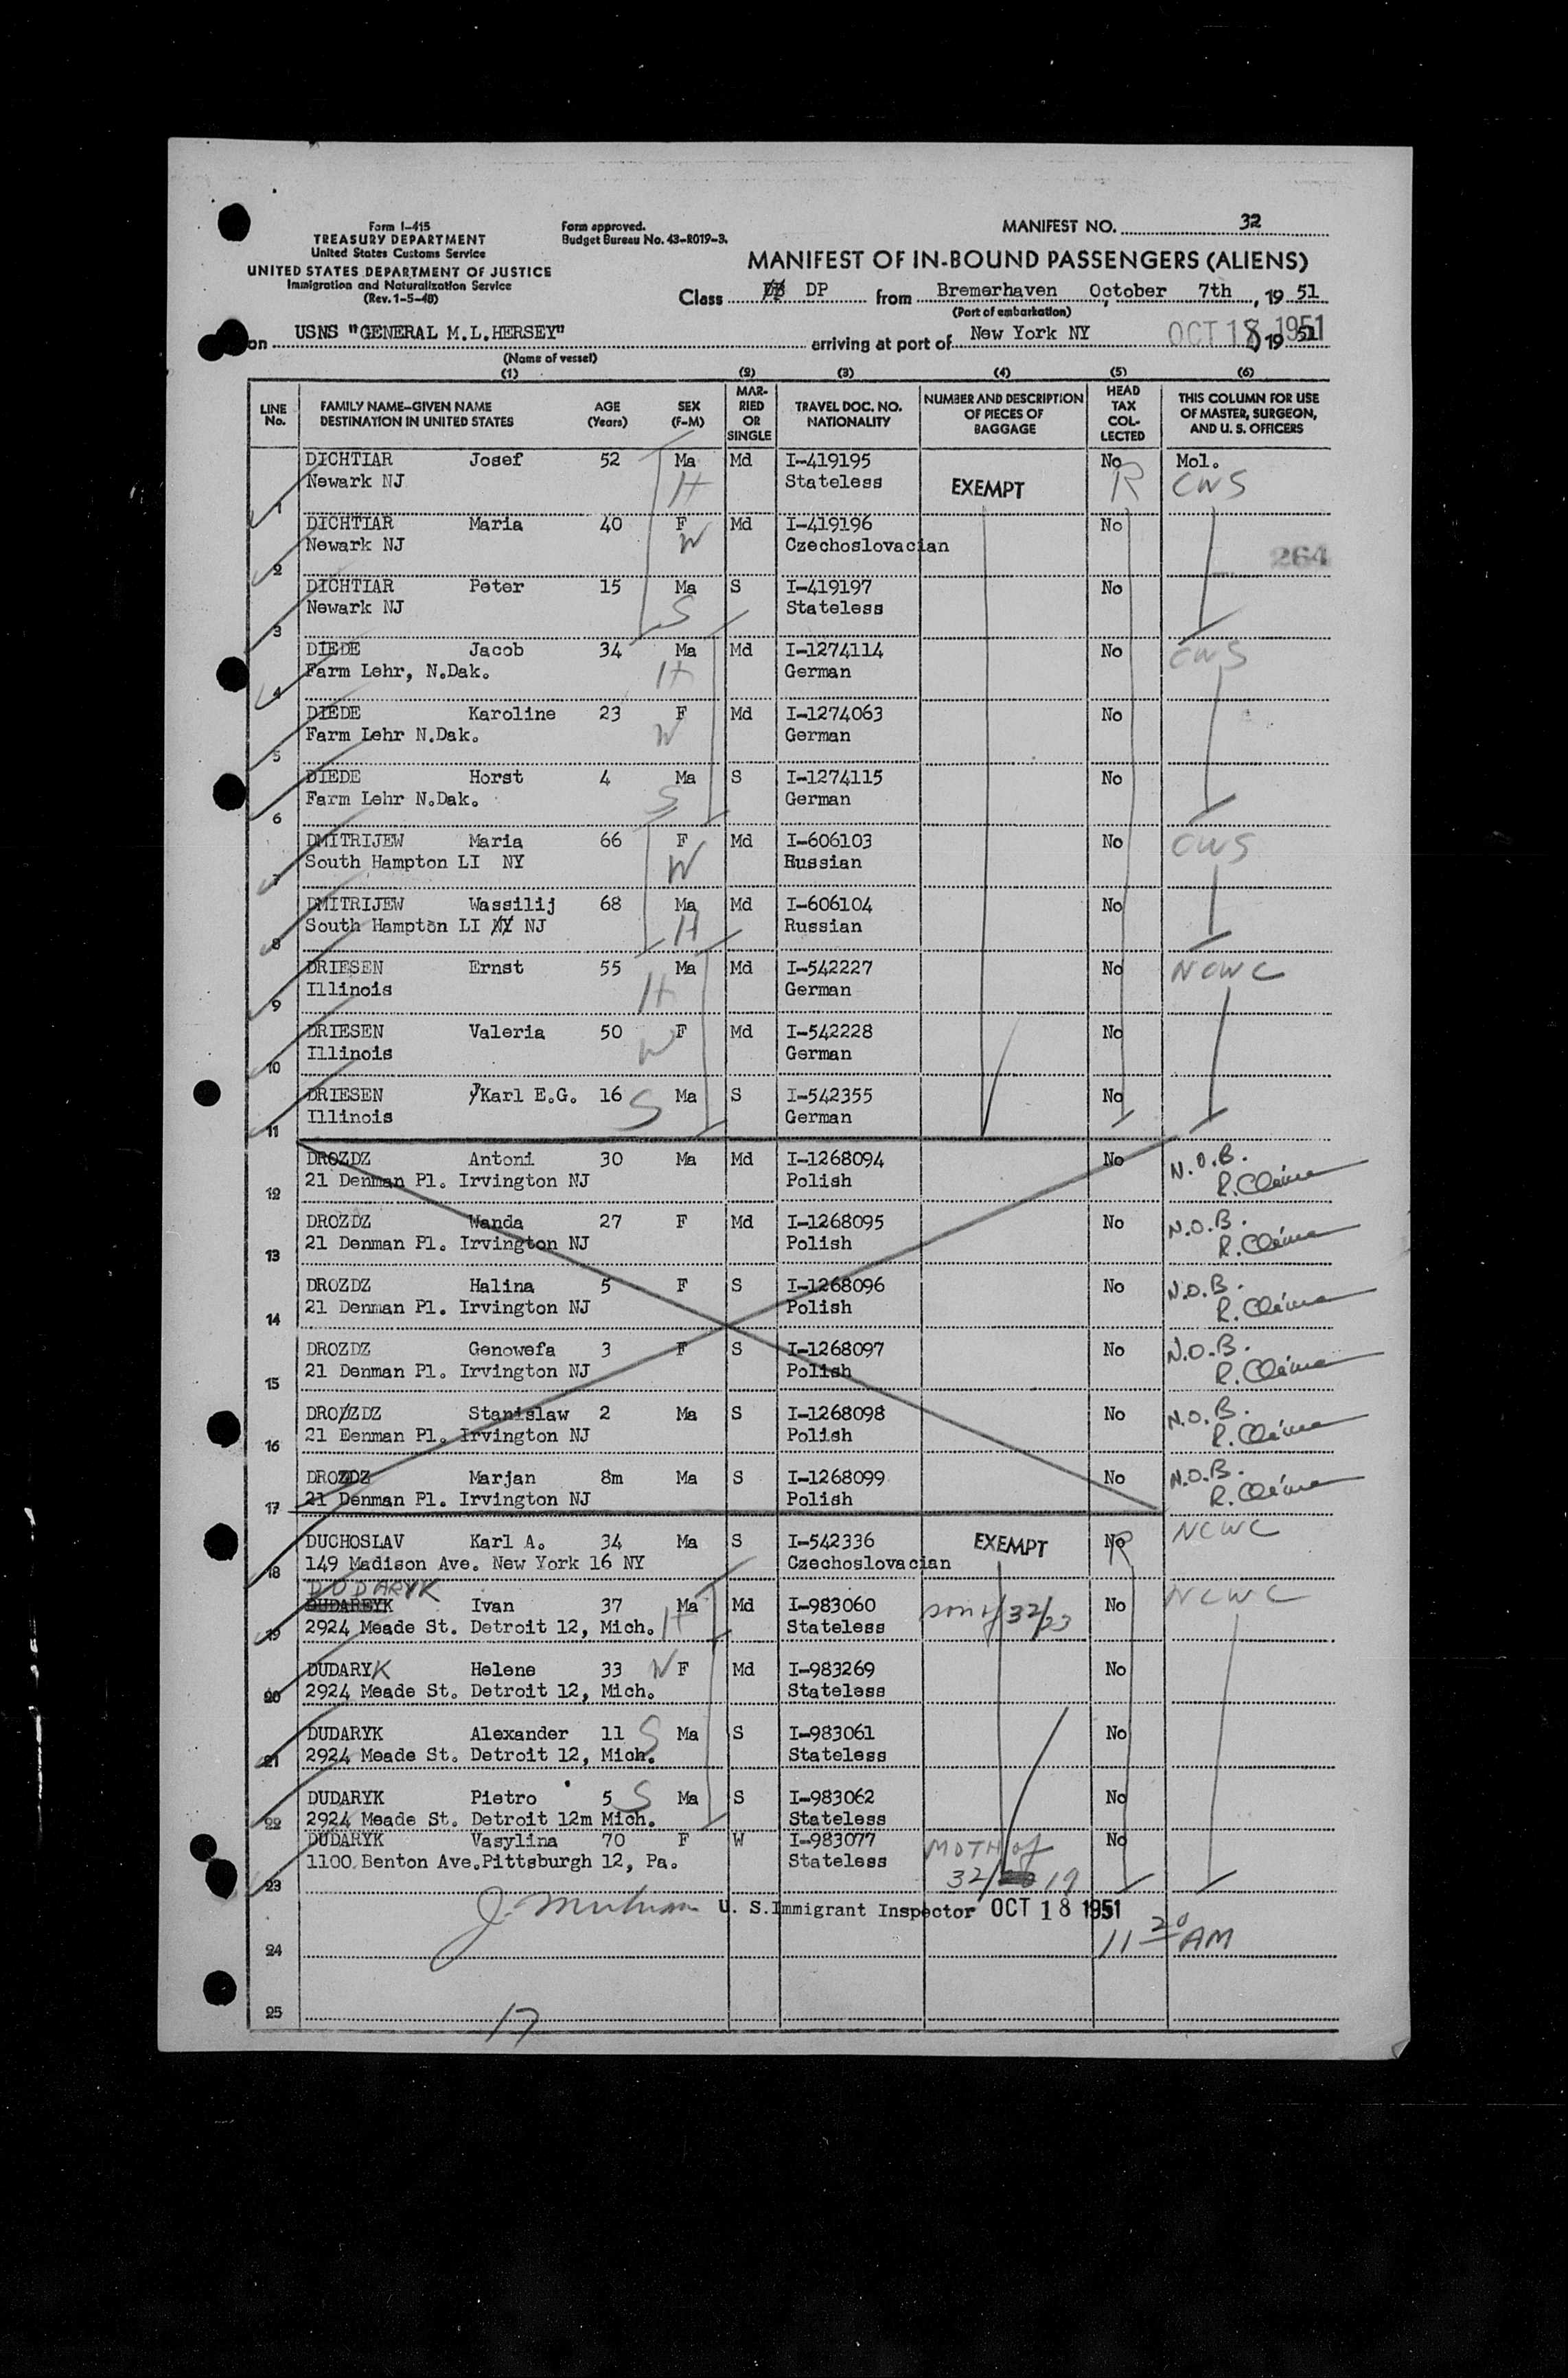 Form I-415
TREASURY DEPARTMENT
United States Customs Service
UNITED STATES DEPARTMENT OF JUSTICE
Immigration and Naturalization Service
(Rev. 1-5-48)
Form approved.
Budget Bureau No. 43-R019-3.
MANIFEST NO. 32
MANIFEST OF IN-BOUND PASSENGERS (ALIENS)
Class DP from Bremerhaven, October 7th, 19 51
(Port of embarkation)
on USNS "GENERAL M.L.HERSEY" arriving at port of New York NY OCT 18 1951 19 51
(Name of vessel)
(1) (2) (3) (4) (5) (6)
LINE No. FAMILY NAME—GIVEN NAME DESTINATION IN UNITED STATES AGE (Years) SEX (F-M) MARRIED OR SINGLE TRAVEL DOC. NO. NATIONALITY NUMBER AND DESCRIPTION OF PIECES OF BAGGAGE HEAD TAX COLLECTED THIS COLUMN FOR USE OF MASTER, SURGEON, AND U. S. OFFICERS
DICHTIAR Josef 52 Ma Md I-419195 No Mol.
1 Newark NJ H Stateless EXEMPT R CWS
DICHTIAR Maria 40 F Md I-419196 No
2 Newark NJ W Czechoslovacian 264
DICHTIAR Peter 15 Ma S I-419197 No
3 Newark NJ S Stateless
DIEDE Jacob 34 Ma Md I-1274114 No CWS
4 Farm Lehr, N.Dak. H German
DIEDE Karoline 23 F Md I-1274063 No
5 Farm Lehr N.Dak. W German
DIEDE Horst 4 Ma S I-1274115 No
6 Farm Lehr N.Dak. S German
DMITRIJEW Maria 66 F Md I-606103 No CWS
7 South Hampton LI NY W Russian
DMITRIJEW Wassilij 68 Ma Md I-606104 No
8 South Hampton LI NY NJ H Russian
DRIESEN Ernst 55 Ma Md I-542227 No NCWC
9 Illinois H German
DRIESEN Valeria 50 F Md I-542228 No
10 Illinois W German
DRIESEN Karl E.G. 16 S Ma S I-542355 No
11 Illinois German
DROZDZ Antoni 30 Ma Md I-1268094 No N.O.B.
12 21 Denman Pl. Irvington NJ Polish
DROZDZ Wanda 27 F Md I-1268095 No N.O.B.
13 21 Denman Pl. Irvington NJ Polish
DROZDZ Halina 5 F S I-1268096 No N.O.B.
14 21 Denman Pl. Irvington NJ Polish
DROZDZ Genowefa 3 F S I-1268097 No N.O.B.
15 21 Denman Pl. Irvington NJ Polish
DROZDZ Stanislaw 2 Ma S I-1268098 No N.O.B.
16 21 Eenman Pl. Irvington NJ Polish
DROZDZ Marjan 8m Ma S I-1268099 No N.O.B.
17 21 Denman Pl. Irvington NJ Polish
DUCHOSLAV Karl A. 34 Ma S I-542336 EXEMPT No R NCWC
18 149 Madison Ave. New York 16 NY Czechoslovacian
DUDARYK
DUDAREYK Ivan 37 Ma Md I-983060 son of 32/23 No NCWC
19 2924 Meade St. Detroit 12, Mich. H Stateless
DUDARYK Helene 33 W F Md I-983269 No
20 2924 Meade St. Detroit 12, Mich. Stateless
DUDARYK Alexander 11 S Ma S I-983061 No
21 2924 Meade St. Detroit 12, Mich. Stateless
DUDARYK Pietro 5 S Ma S I-983062 No
22 2924 Meade St. Detroit 12m Mich. Stateless
DUDARYK Vasylina 70 F W I-983077 MOTH of No
23 1100 Benton Ave.Pittsburgh 12, Pa. Stateless 32/19
U. S.Immigrant Inspector OCT 18 1951
24 11 20 AM
25
17